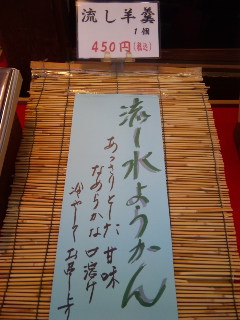 流し羊羹
1個
450円(税込)
流し水ようかん
あっさりとした甘味
なめらかな口溶け
冷やして